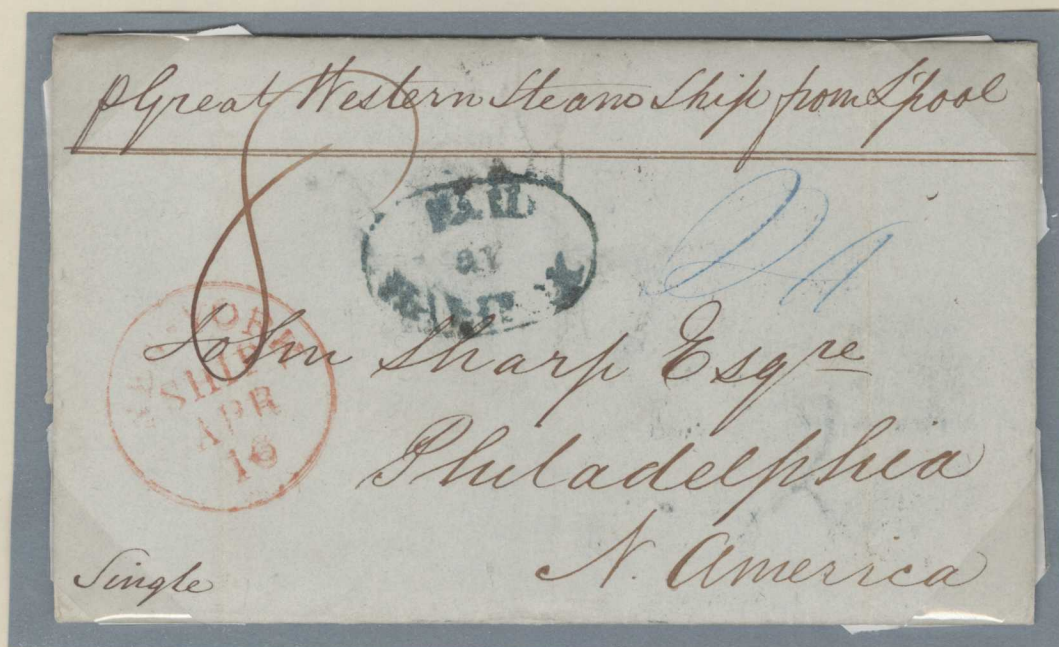 p Great Western Steam Ship from L'pool
8
PAID
AT
24
NEW-YORK
SHIP
APR
16
John Sharp Esqre
Philadelphia
N. America
Single